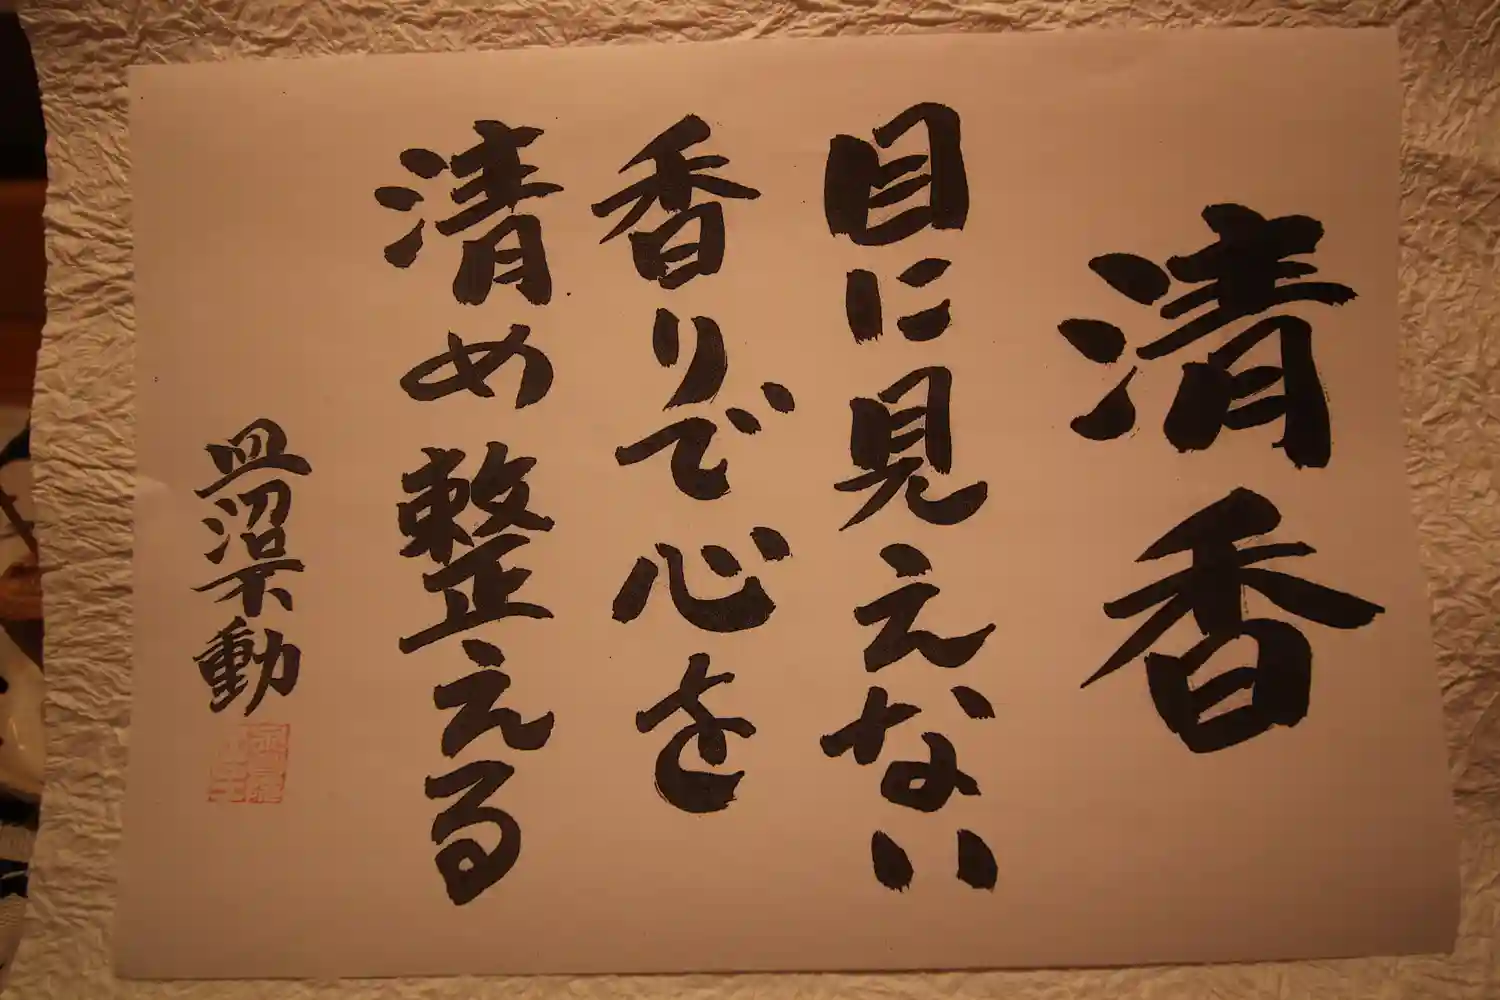 清香
目に見えない
香りで心を
清め整える
皿沼不動